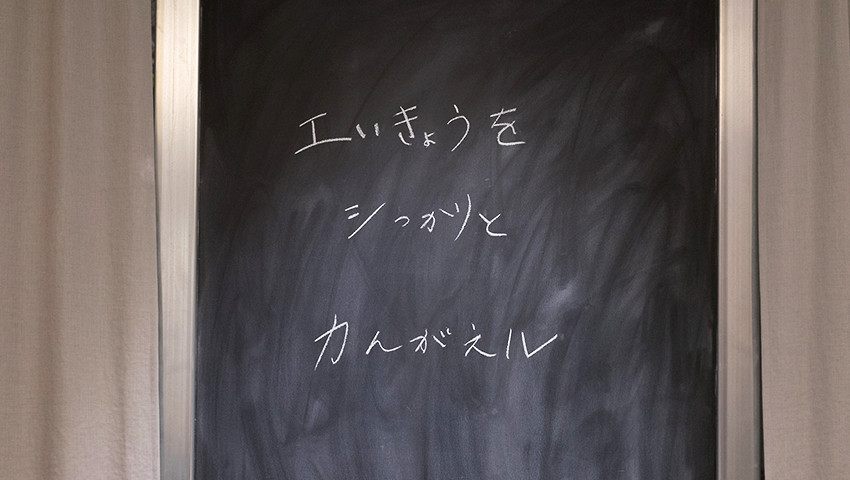 エいきょうを
シっかりと
カんがえル